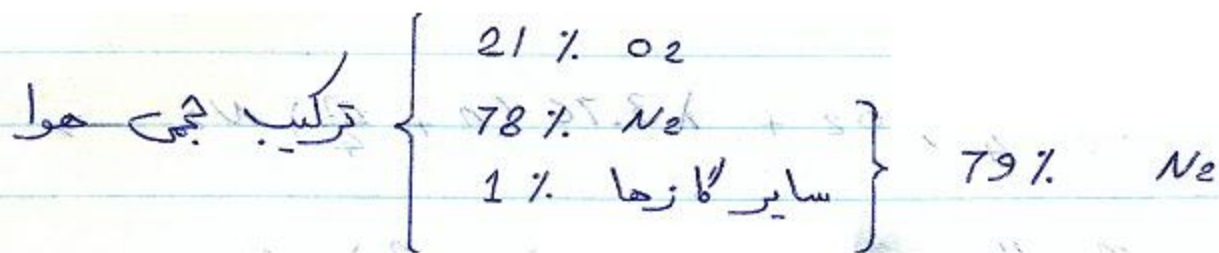 ترکیب حجمی هوا
21 % O2
78 % N2
سایر گازها 1 %
79 % N2